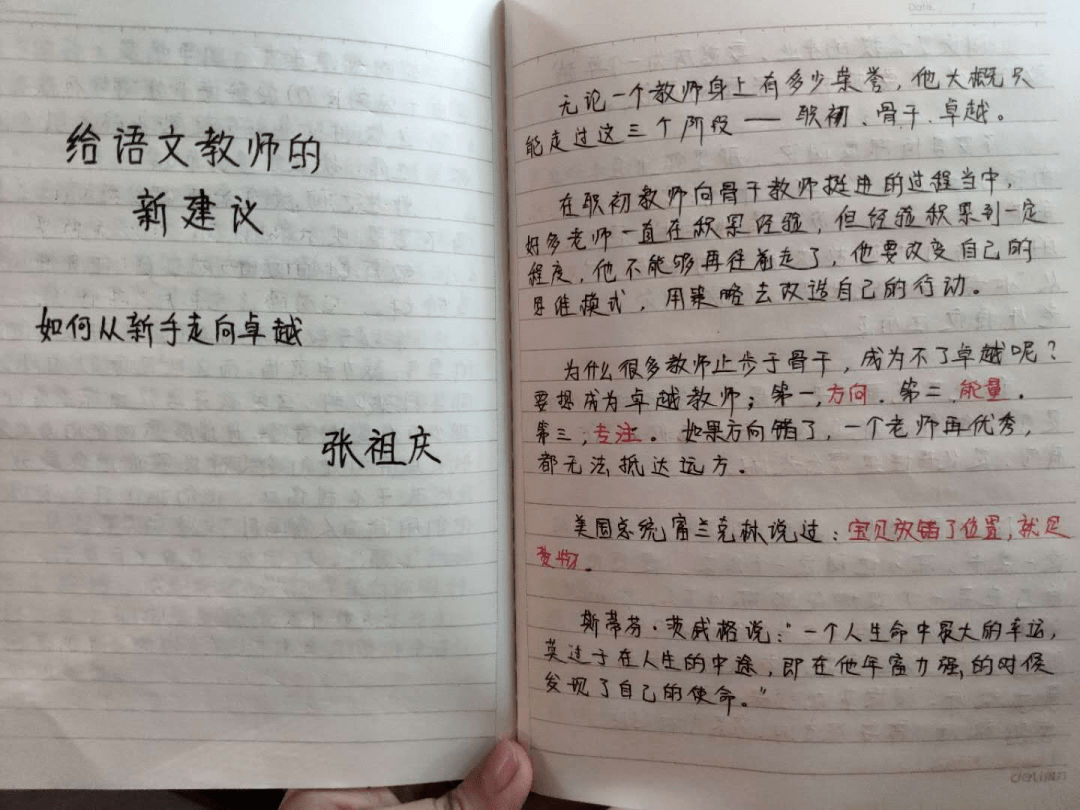 给语文教师的
新建议
如何从新手走向卓越
张祖庆
Date.
无论一个教师身上有多少荣誉，他大概只
能走过这三个阶段——职初、骨干、卓越。
在职初教师向骨干教师挺进的过程当中，
好多老师一直在积累经验，但经验积累到一定
程度，他不能够再往前走了，他要改变自己的
思维模式，用策略去改造自己的行动。
为什么很多教师止步于骨干，成为不了卓越呢？
要想成为卓越教师；第一，方向．第二，能量．
第三，专注。如果方向错了，一个老师再优秀，
都无法抵达远方．
美国总统富兰克林说过：宝贝放错了位置，就是
废物．
斯蒂芬·茨威格说："一个人生命中最大的幸运，
莫过于在人生的中途，即在他年富力强的时候
发现了自己的使命。"